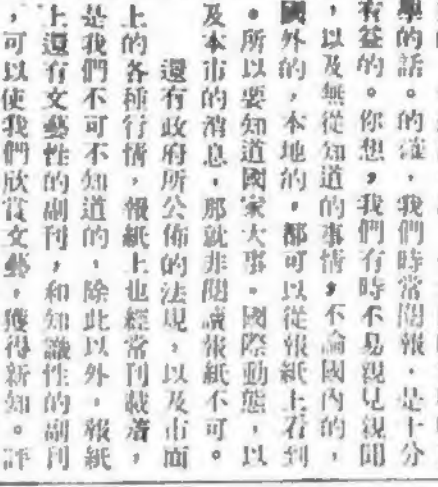 學的話。的確，我們時常閱報，是十分
有益的。你想，我們有時不易親見親聞
，以及無從知道的事情，不論國內的，
國外的，本地的，都可以從報紙上看到
。所以要知道國家大事。國際動態，以
及本市的消息，那就非閱讀報紙不可。
還有政府所公佈的法規，以及市面
上的各種行情，報紙上也經常刊載着，
是我們不可不知道的，除此以外，報紙
上還有文藝性的副刊，和知識性的副刊
，可以使我們欣賞文藝，獲得新知。評